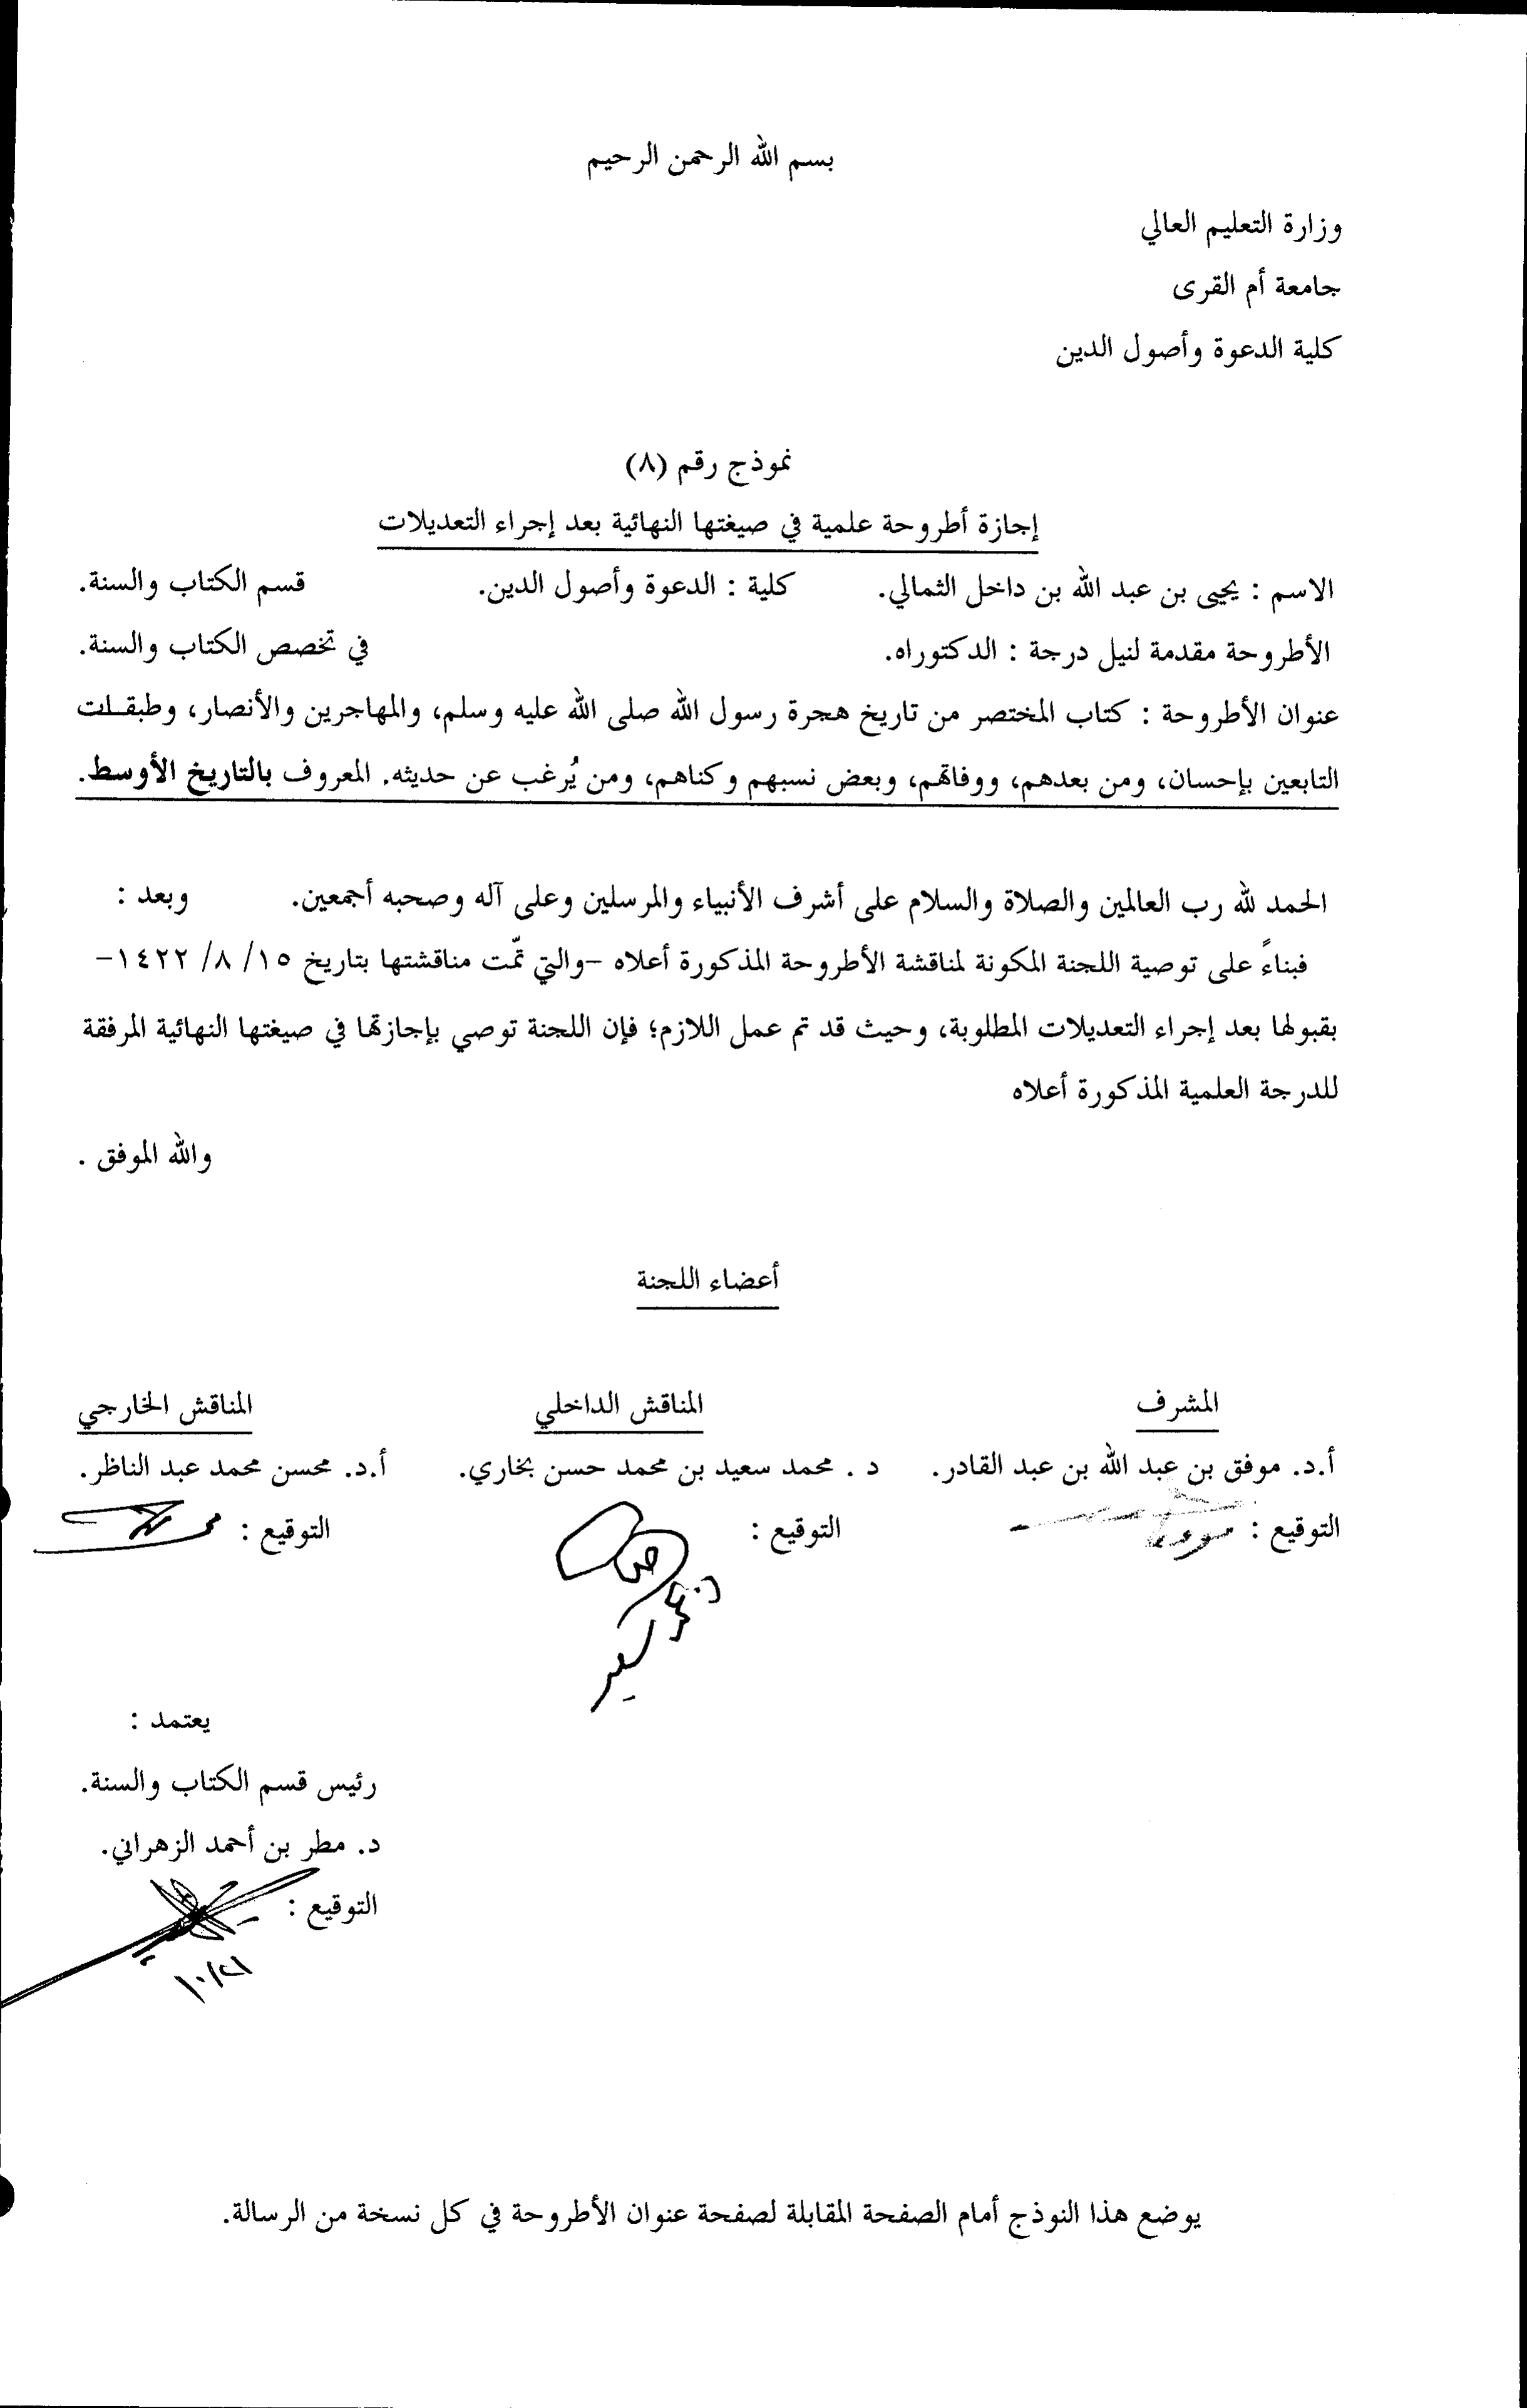 بسم الله الرحمن الرحيم
وزارة التعليم العالي
جامعة أم القرى
كلية الدعوة وأصول الدين
نموذج رقم (٨)
إجازة أطروحة علمية في صيغتها النهائية بعد إجراء التعديلات
الاسم : يحيى بن عبد الله بن داخل الثمالي. كلية : الدعوة وأصول الدين. قسم الكتاب والسنة.
الأطروحة مقدمة لنيل درجة : الدكتوراه. في تخصص الكتاب والسنة.
عنوان الأطروحة : كتاب المختصر من تاريخ هجرة رسول الله صلى الله عليه وسلم، والمهاجرين والأنصار، وطبقات
التابعين بإحسان، ومن بعدهم، ووفاتهم، وبعض نسبهم وكناهم، ومن يُرغب عن حديثه. المعروف بالتاريخ الأوسط.
الحمد لله رب العالمين والصلاة والسلام على أشرف الأنبياء والمرسلين وعلى آله وصحبه أجمعين. وبعد :
فبناءً على توصية اللجنة المكونة لمناقشة الأطروحة المذكورة أعلاه -والتي تمّت مناقشتها بتاريخ ١٥/ ٨/ ١٤٢٢-
بقبولها بعد إجراء التعديلات المطلوبة، وحيث قد تم عمل اللازم؛ فإن اللجنة توصي بإجازتها في صيغتها النهائية المرفقة
للدرجة العلمية المذكورة أعلاه
والله الموفق .
أعضاء اللجنة
المشرف المناقش الداخلي المناقش الخارجي
أ.د. موفق بن عبد الله بن عبد القادر. د . محمد سعيد بن محمد حسن بخاري. أ.د. محسن محمد عبد الناظر.
التوقيع : التوقيع : التوقيع :
د. محمد سعيد
يعتمد :
رئيس قسم الكتاب والسنة.
د. مطر بن أحمد الزهراني.
التوقيع :
١٠/٢١
يوضع هذا النوذج أمام الصفحة المقابلة لصفحة عنوان الأطروحة في كل نسخة من الرسالة.